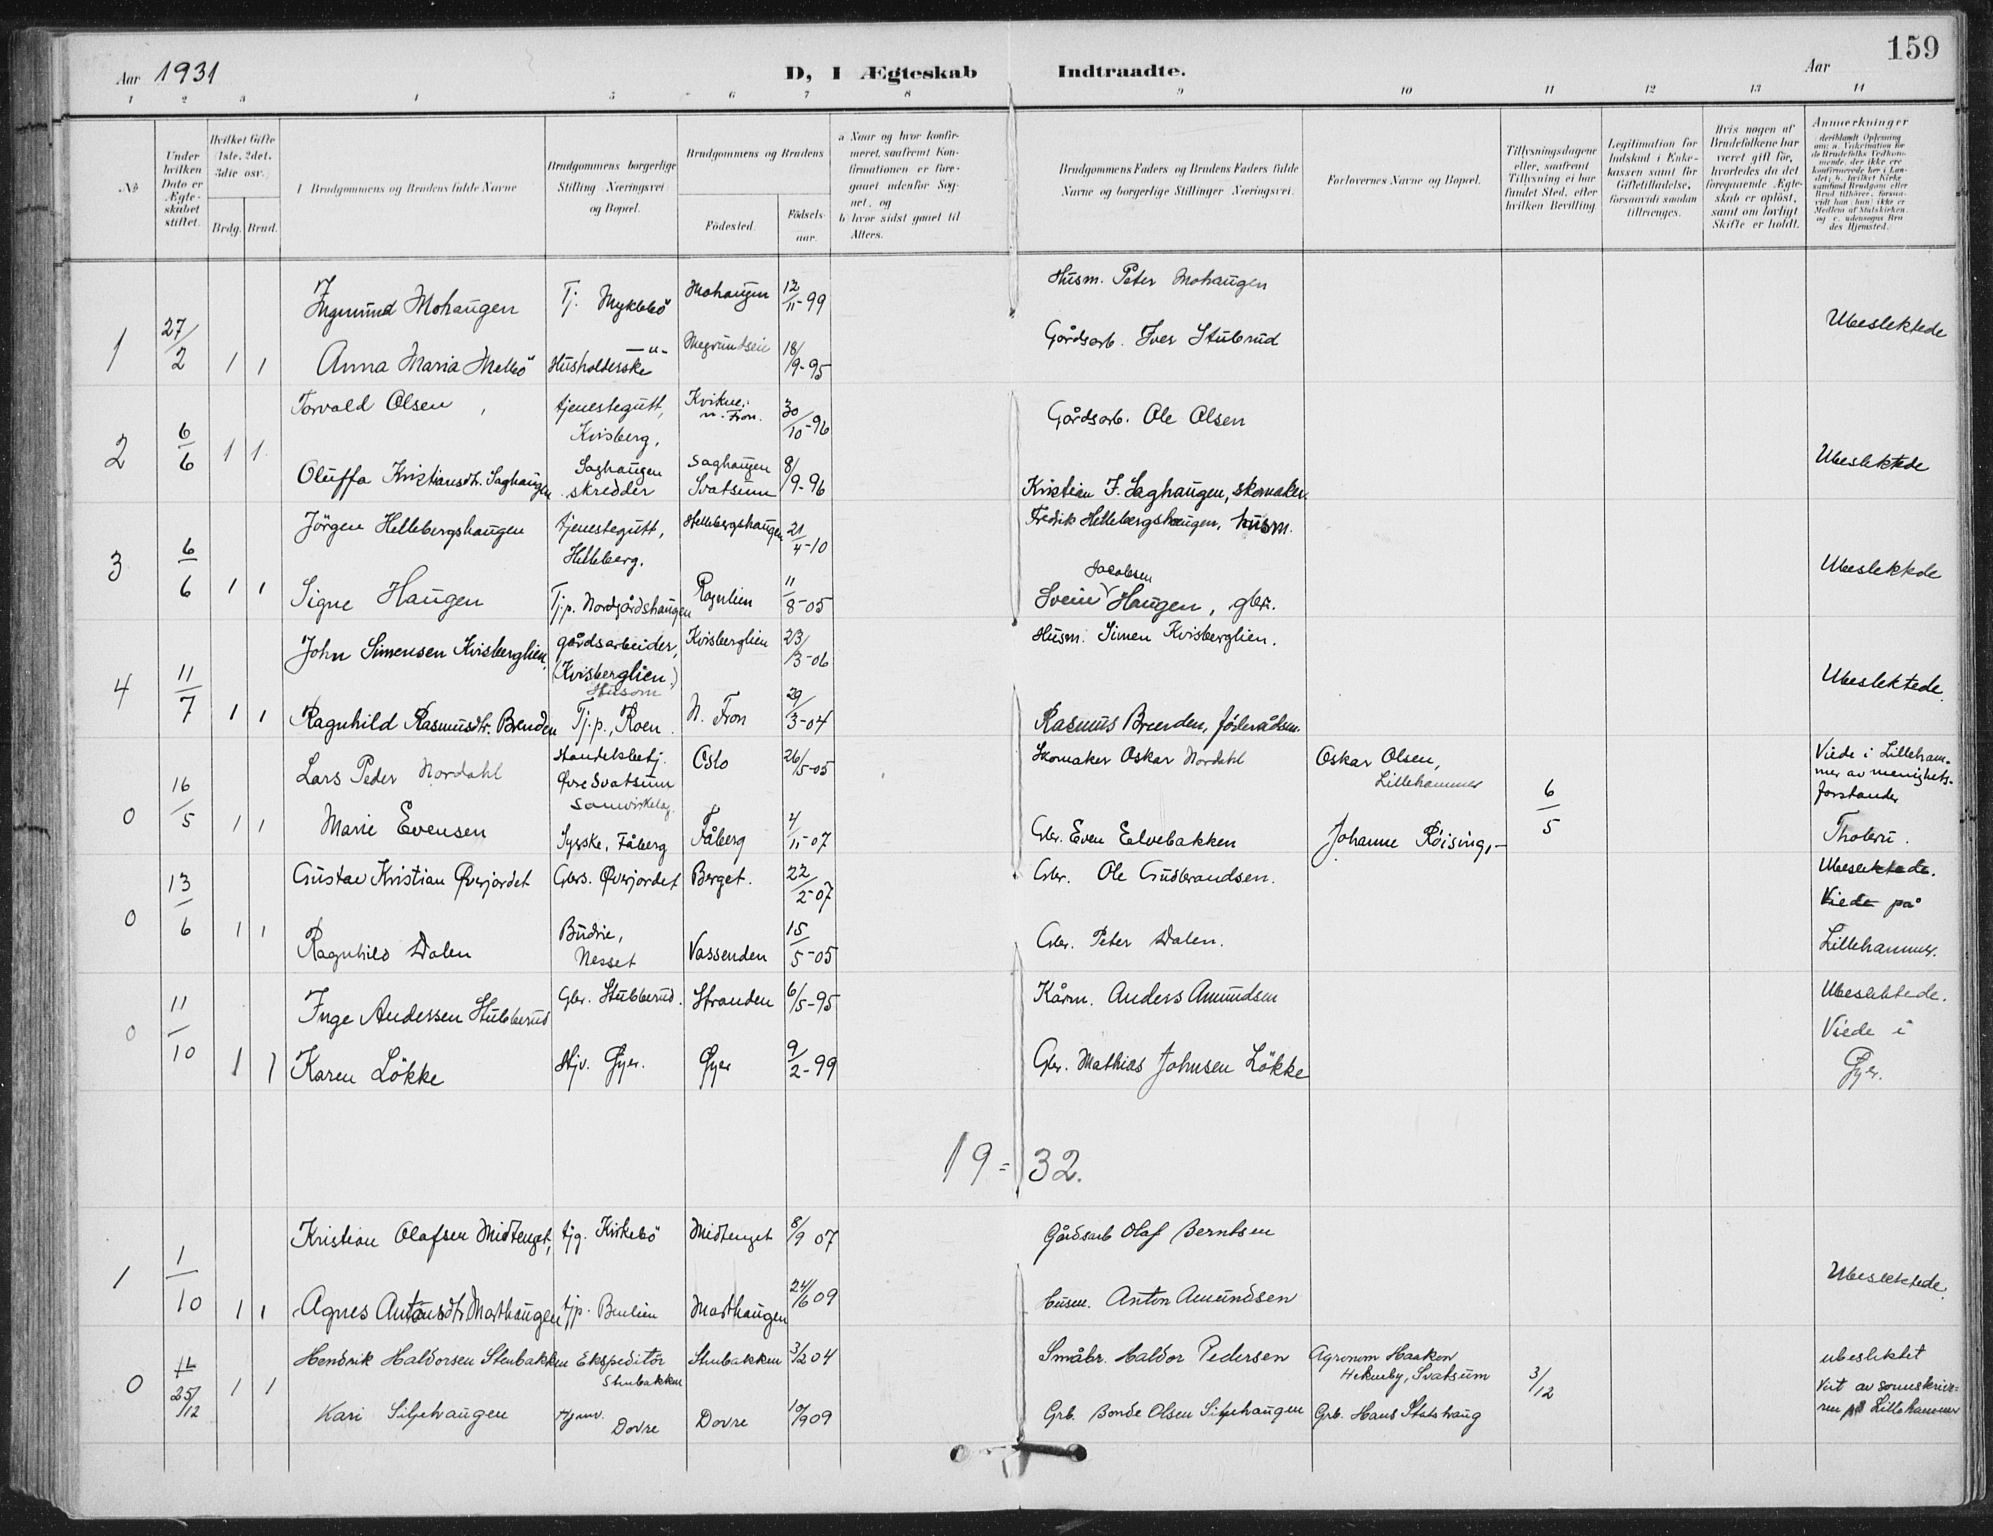 159
Aar 1931 D, I Ægteskab Indtraadte. Aar
1 2 3 4 5 6 7 8 9 10 11 12 13 14
No
Under hvilken Dato er Ægteskabet stiftet.
Hvilket Gifte 1ste, 2det, 3die osv.
Brdg. Brud.
Brudgommens og Brudens fulde Navne
Brudgommens borgerlige Stilling Næringsvei og Bopæl.
Brudgommens og Brudens
Födested. Födselsaar.
a Naar og hvor konfirmeret, saafremt Konfirmationen er foregaaet udenfor Sognet, og
b hvor sidst gaaet til Alters.
Brudgommens Faders og Brudens Faders fulde Navne og borgerlige Stillinger Næringsvei.
Forlovernes Navne og Bopæl.
Tillysningsdagene eller, saafremt Tillysning ei har fundet Sted, efter hvilken Bevilling
Legitimation for Indskud i Enkekassen samt for Giftetilladelse, forsaavidt saadan tiltrænges.
Hvis nogen af Brudefolkene har været gift för, hvorledes da det foregaaende Ægteskab er oplöst, samt om lovligt Skifte er holdt.
Anmærkninger
1 27/2 1 1
Ingmund Mohaugen Tj. Myklebö Mohaugen 12/11-99 Husm. Peter Mohaugen
Anna Maria Melbö Husholderske —"— 18/9-95 Gårdsarb. Iver Stubrud
Ubeslektede
2 6/6 1 1
Torvald Olsen tjenestegutt, Kvisberg, Kvikne, n. Fron. 30/10-96 Gårdsarb. Ole Olsen
Oluffa Kristiansdtr. Saghaugen Saghaugen skredder Saghaugen Svatsum 8/9-96 Kristian F. Saghaugen, skomaker
Ubeslektede
3 6/6 1 1
Jörgen Hellebergshaugen tjenestegutt, Helleberg. Hellebergshaugen 21/4-10 Fredik Hellebergshaugen, husm.
Signe Haugen Tj.p. Nordgårdshaugen Rognlien 11/8-05 Svein Jacobsen Haugen, gbr.
Ubeslektede
4 11/7 1 1
John Simensen Kvisberglien, gårdsarbeider, (Kvisberglien.) Kvisberglien 23/3-06 Husm. Simen Kvisberglien.
Ragnhild Rasmusdtr. Brenden Tj.p., Roen. N. Fron 29/3-04 Rasmus Brenden, föderådsm.
Ubeslektede.
0 16/5 1 1
Lars Peder Nordahl Handelsbetj. Øvre Svatsum Samvirkelag. Oslo 26/5-05 Skomaker Oskar Nordahl Oskar Olsen, Lillehammer 6/5
Marie Evensen Syerske, Fåberg Fåberg 4/11-07 Gbr. Even Eelvebakken Johanne Röising, —
Viede i Lillehammer av menighetsforstander Tholeru.
0 13/6 1 1
Gustav Kristian Øverjordet Gbrs. Øverjordet Berget. 22/2-07 Gbr. Ole Gudbrandsen.
Ragnhild Dalen Budeie, Nesset Vassenden 15/5-05 Gbr. Peter Dalen.
Ubeslektede. Viede på Lillehammer.
0 11/10 1 1
Inge Andersen Stubberud Gbr. Stubberud. Stranden 6/5-95 Kårm. Anders Amundsen
Karen Lökke Hjv. Øyer. Øyer 9/2-99 Gbr. Mathias Johnsen Lökke
Ubeslektede. Viede i Øyer.
19=32.
1 1/10 1 1
Kristian Olafsen Midtenget, tjg. Kirkebö Midtenget 8/9 07 Gårdsarb Olaf Berntsen
Agnes Antonsdtr. Morthaugen tjp. Morthaugen 24/6 09 husm. Anton Amundsen
Ubeslektede.
0 25/12 1 1
Hendrik Haldorsen Stenbakken Ekspeditör Stenbakken Stenbakken 3/2 04 Småbr. Haldor Pedersen Agronom Haakon Hekneby, Svatsum 3/12
Kari Siljehaugen Hjemv. Dovre Dovre 10/9 09 Grb. Bonde Olsen Siljehaugen Grb. Hans Statshaug
ubeslektet Viet av sorenskriveren på Lillehammer